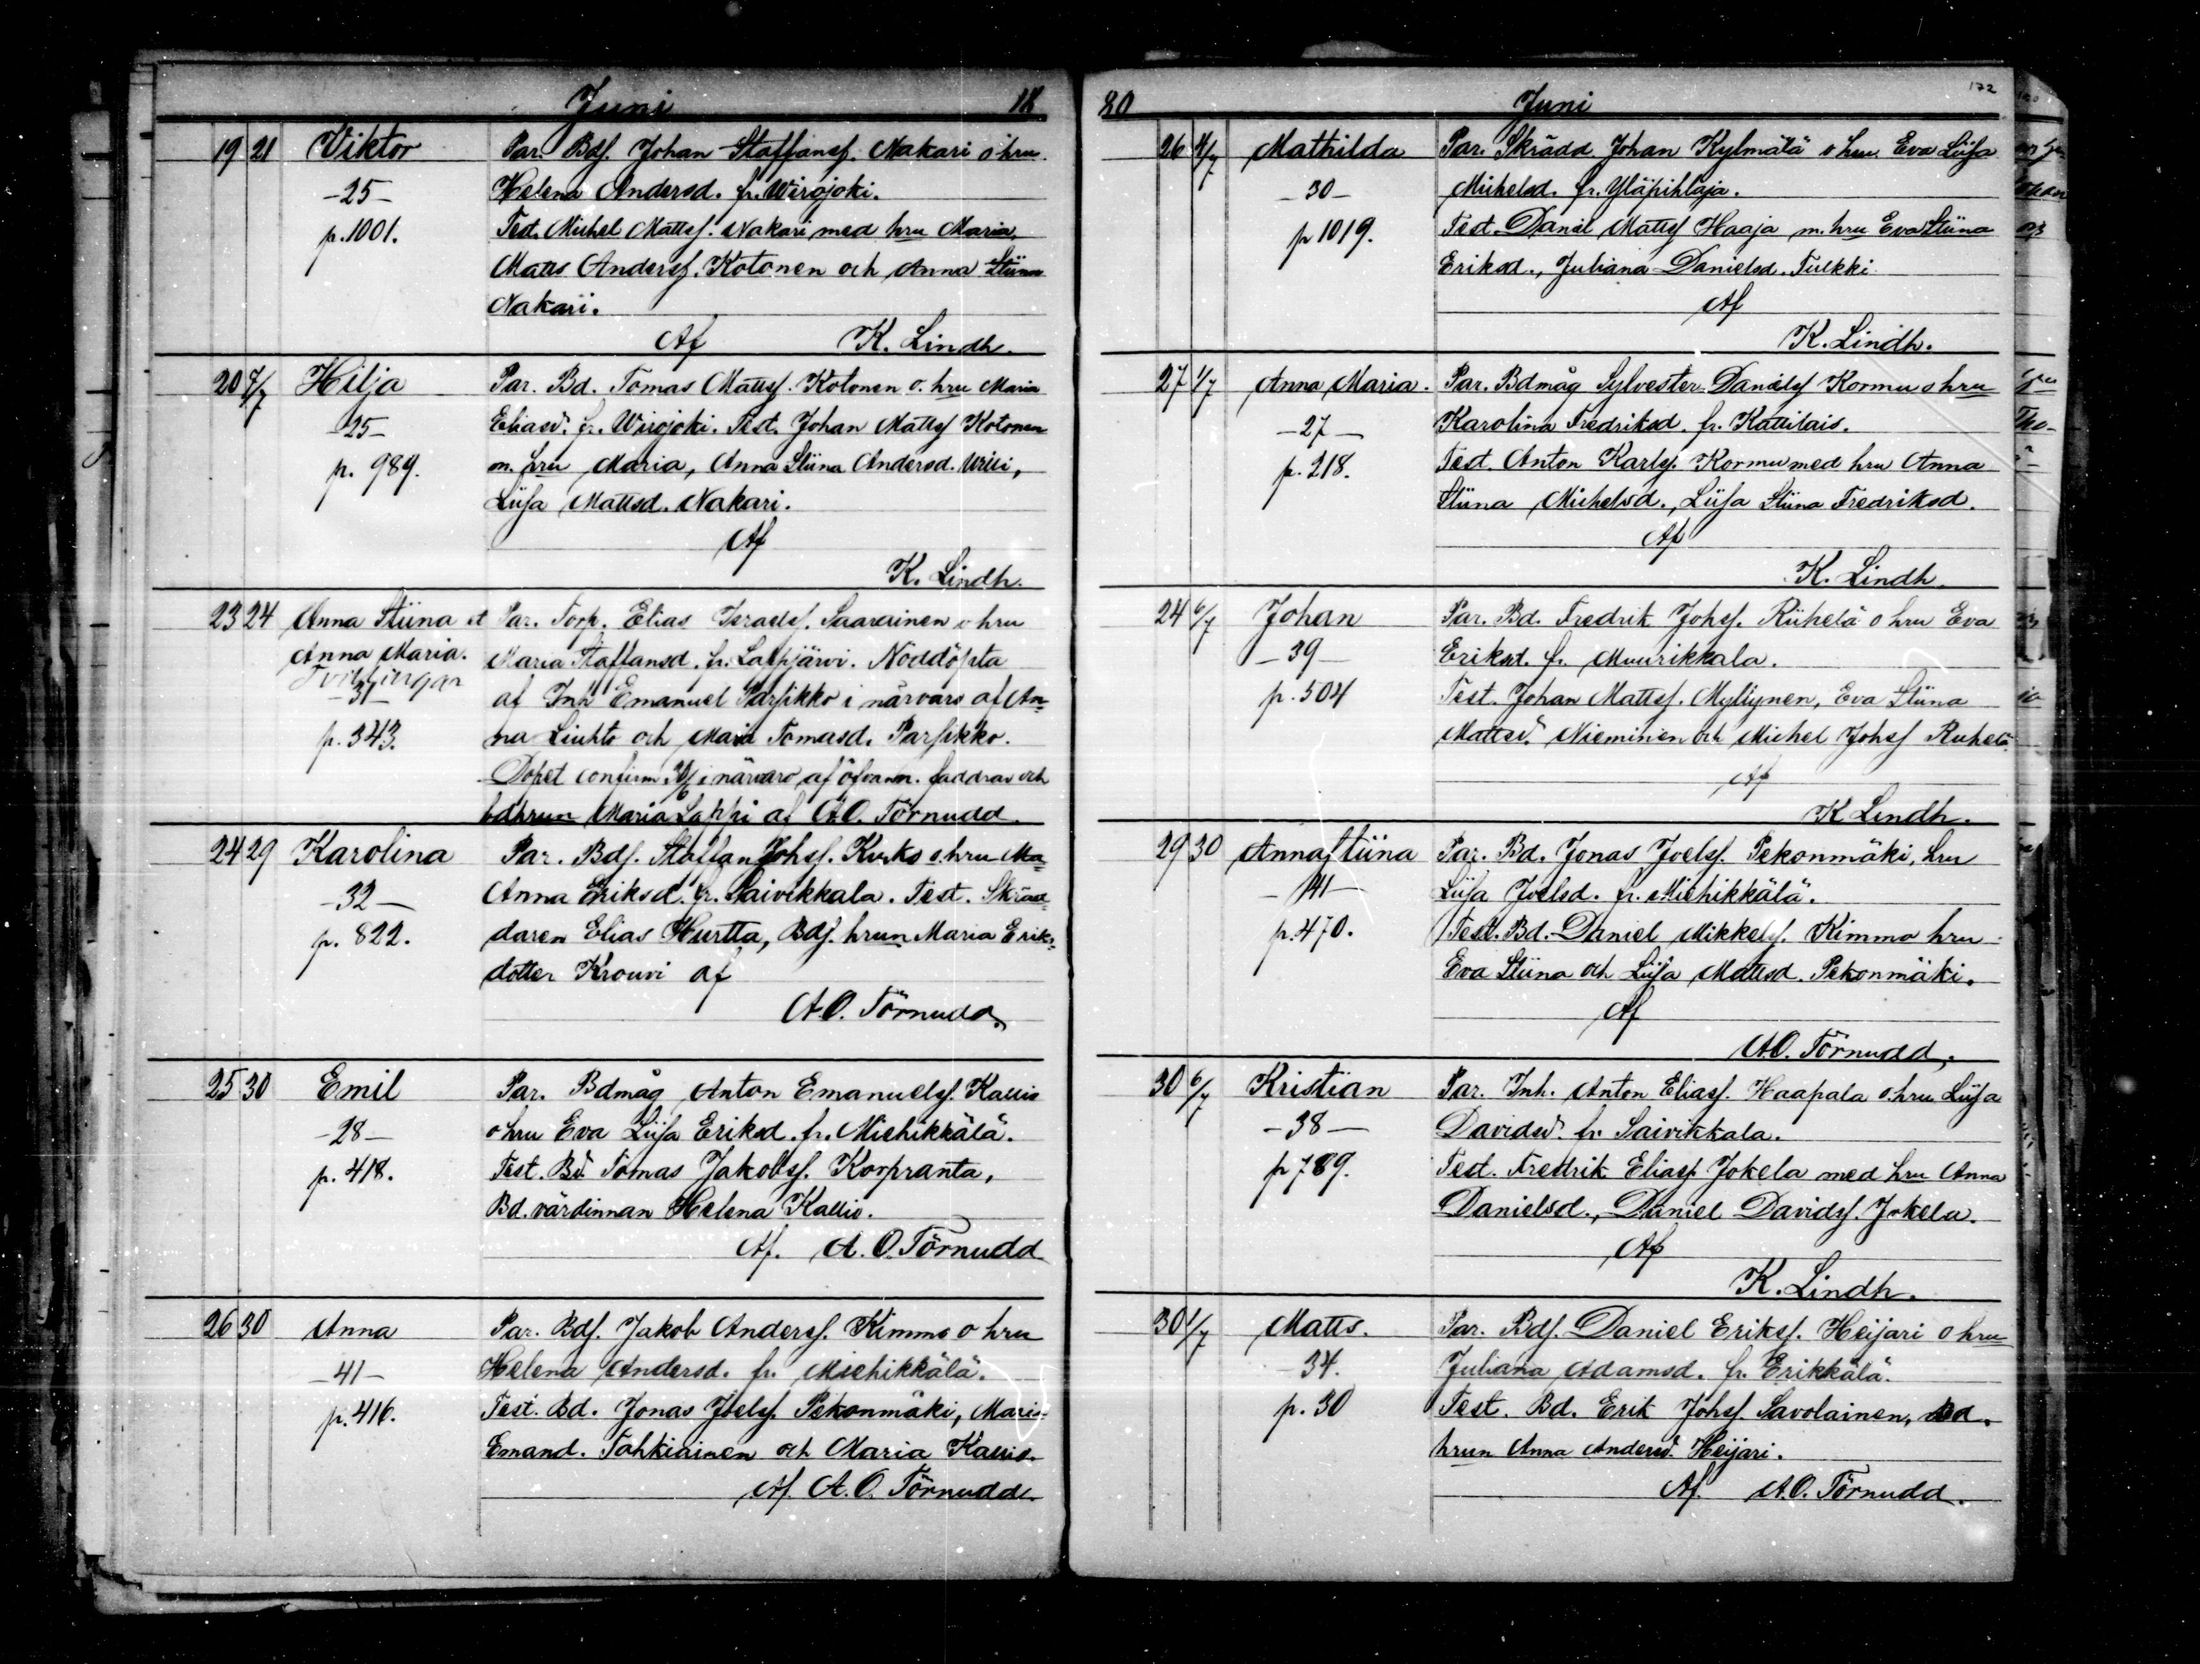 Juni 18
19 21 Viktor Par. Bdf. Johan Staffansf. Nakari o hru
-25- Helena Andersd. fr. Wirojoki.
p. 1001. Test. Michel Mattsf. Nakari med hru Maria
Matts Andersf. Kotonen och Anna Stiina
Nakari.
Af K. Lindh.
20 4/7 Hilja Par. Bd. Tomas Mattsf. Kotonen o. hru Maria
-25- Eliasd. fr. Wirojoki. Test. Johan Mattsf Kotonen
p. 989. m. hru Maria, Anna Stiina Andersd. Willi,
Liisa Mattsd. Nakari.
Af
K. Lindh.
23 24 Anna Stiina et Par. Torp. Elias Israelsf. Saarainen o hru
Anna Maria. Maria Staffansd. fr. Laitjärvi. Nöddöpta
Tvillingar
-31- af Inh Emanuel Parsikko i närvaro af An-
p. 343. na Liuhto och Maria Tomasd. Parsikko.
Dopet confirm. i närvaro af öfvann. faddrar och
bdhrun Maria Lappi af A O. Törnudd.
24 29 Karolina Par. Bdf. Staffan Johsf. Kurko o. hru Ma-
-32- Anna Eriksd. fr. Saivikkala. Test. Skräd-
p. 822. daren Elias Hurtta, Bdf. hrun Maria Erik-
dotter Krouvi af
A. O. Törnudd.
25 30 Emil Par. Bdmåg Anton Emanuelsf. Kallio
-28- o hru Eva Liisa Eriksd. fr. Miehikkälä.
p. 418. Test. Bd. Tomas Jakobsf. Korpranta,
Bd. värdinnan Helena Kallio.
Af. A. O. Törnudd
26 30 Anna Par. Bdf. Jakob Andersf. Kimmo o hru
-41- Helena Andersd. fr. Miehikkälä.
p. 416. Test. Bd. Jonas Joelsf. Pekonmäki, Maria
Emand. Tahkiainen och Maria Kallio.
Af. A. O. Törnudd.
80 Juni 172
26 4/7 Mathilda Par. Skrädd. Johan Kylmälä o hru Eva Liisa
-30- Michelsd. fr. Yläpihlaja.
p 1019. Test. Daniel Mattsf Haaja m. hru Eva Stiina
Eriksd., Juliana Danielsd. Tulkki.
Af
K. Lindh.
27 1/7 Anna Maria. Par. Bdmåg Sylvester Danielsf Kormu o hru
-27- Karolina Fredriksd. fr. Kattilais.
p. 218. Test. Anton Karlsf. Kormu med hru Anna
Stiina Michelsd., Liisa Stiina Fredriksd.
Af
K. Lindh.
24 6/7 Johan Par. Bd. Fredrik Johsf. Riihelä o hru Eva
-39- Eriksd. fr Muurikkala.
p. 504 Test. Johan Mattsf. Myllynen, Eva Stiina
Mattsd. Nieminen och Michel Johsf Riihelä.
Af
K Lindh.
29 30 Anna Stiina Par. Bd. Jonas Joelsf. Pekonmäki, hru
-41- Liisa Joelsd. fr. Miehikkälä.
p. 470. Test. Bd. Daniel Mikkelsf. Kimmo hru
Eva Stiina och Liisa Mattsd. Pekonmäki.
Af
A O. Törnudd.
30 6/7 Kristian Par. Inh. Anton Eliasf. Haapala o. hru Liisa
-38- Davidsd. fr Saivikkala.
p 789. Test. Fredrik Eliasf Jokela med hru Anna
Danielsd., Daniel Davidsf. Jokela.
Af
K. Lindh.
30 1/7 Matts. Par. Bdf. Daniel Eriksf. Heijari o hru
34. Juliana Adamsd. fr. Erikkälä.
p. 30 Test. Bd. Erik Johsf. Savolainen, Bd.
hrun Anna Andersd. Heijari.
Af. A. O. Törnudd.